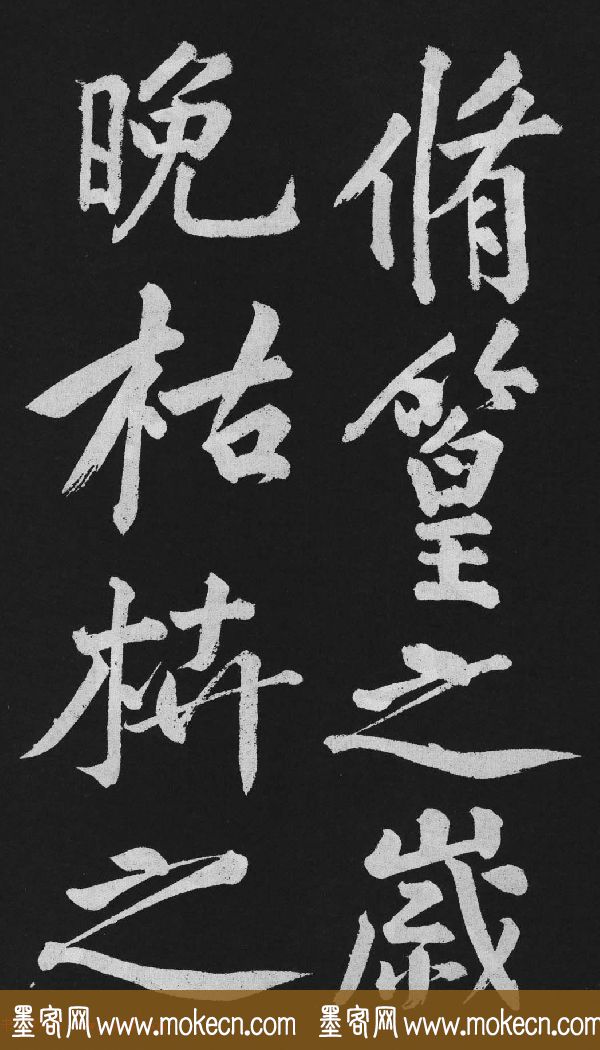 脩篁之歲
晚枯枿之
墨客网 www.mokecn.com 墨客网 www.mokecn.com